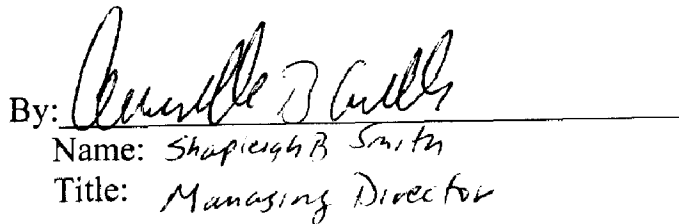 By:
Name: Shapleigh B Smith
Title: Managing Director